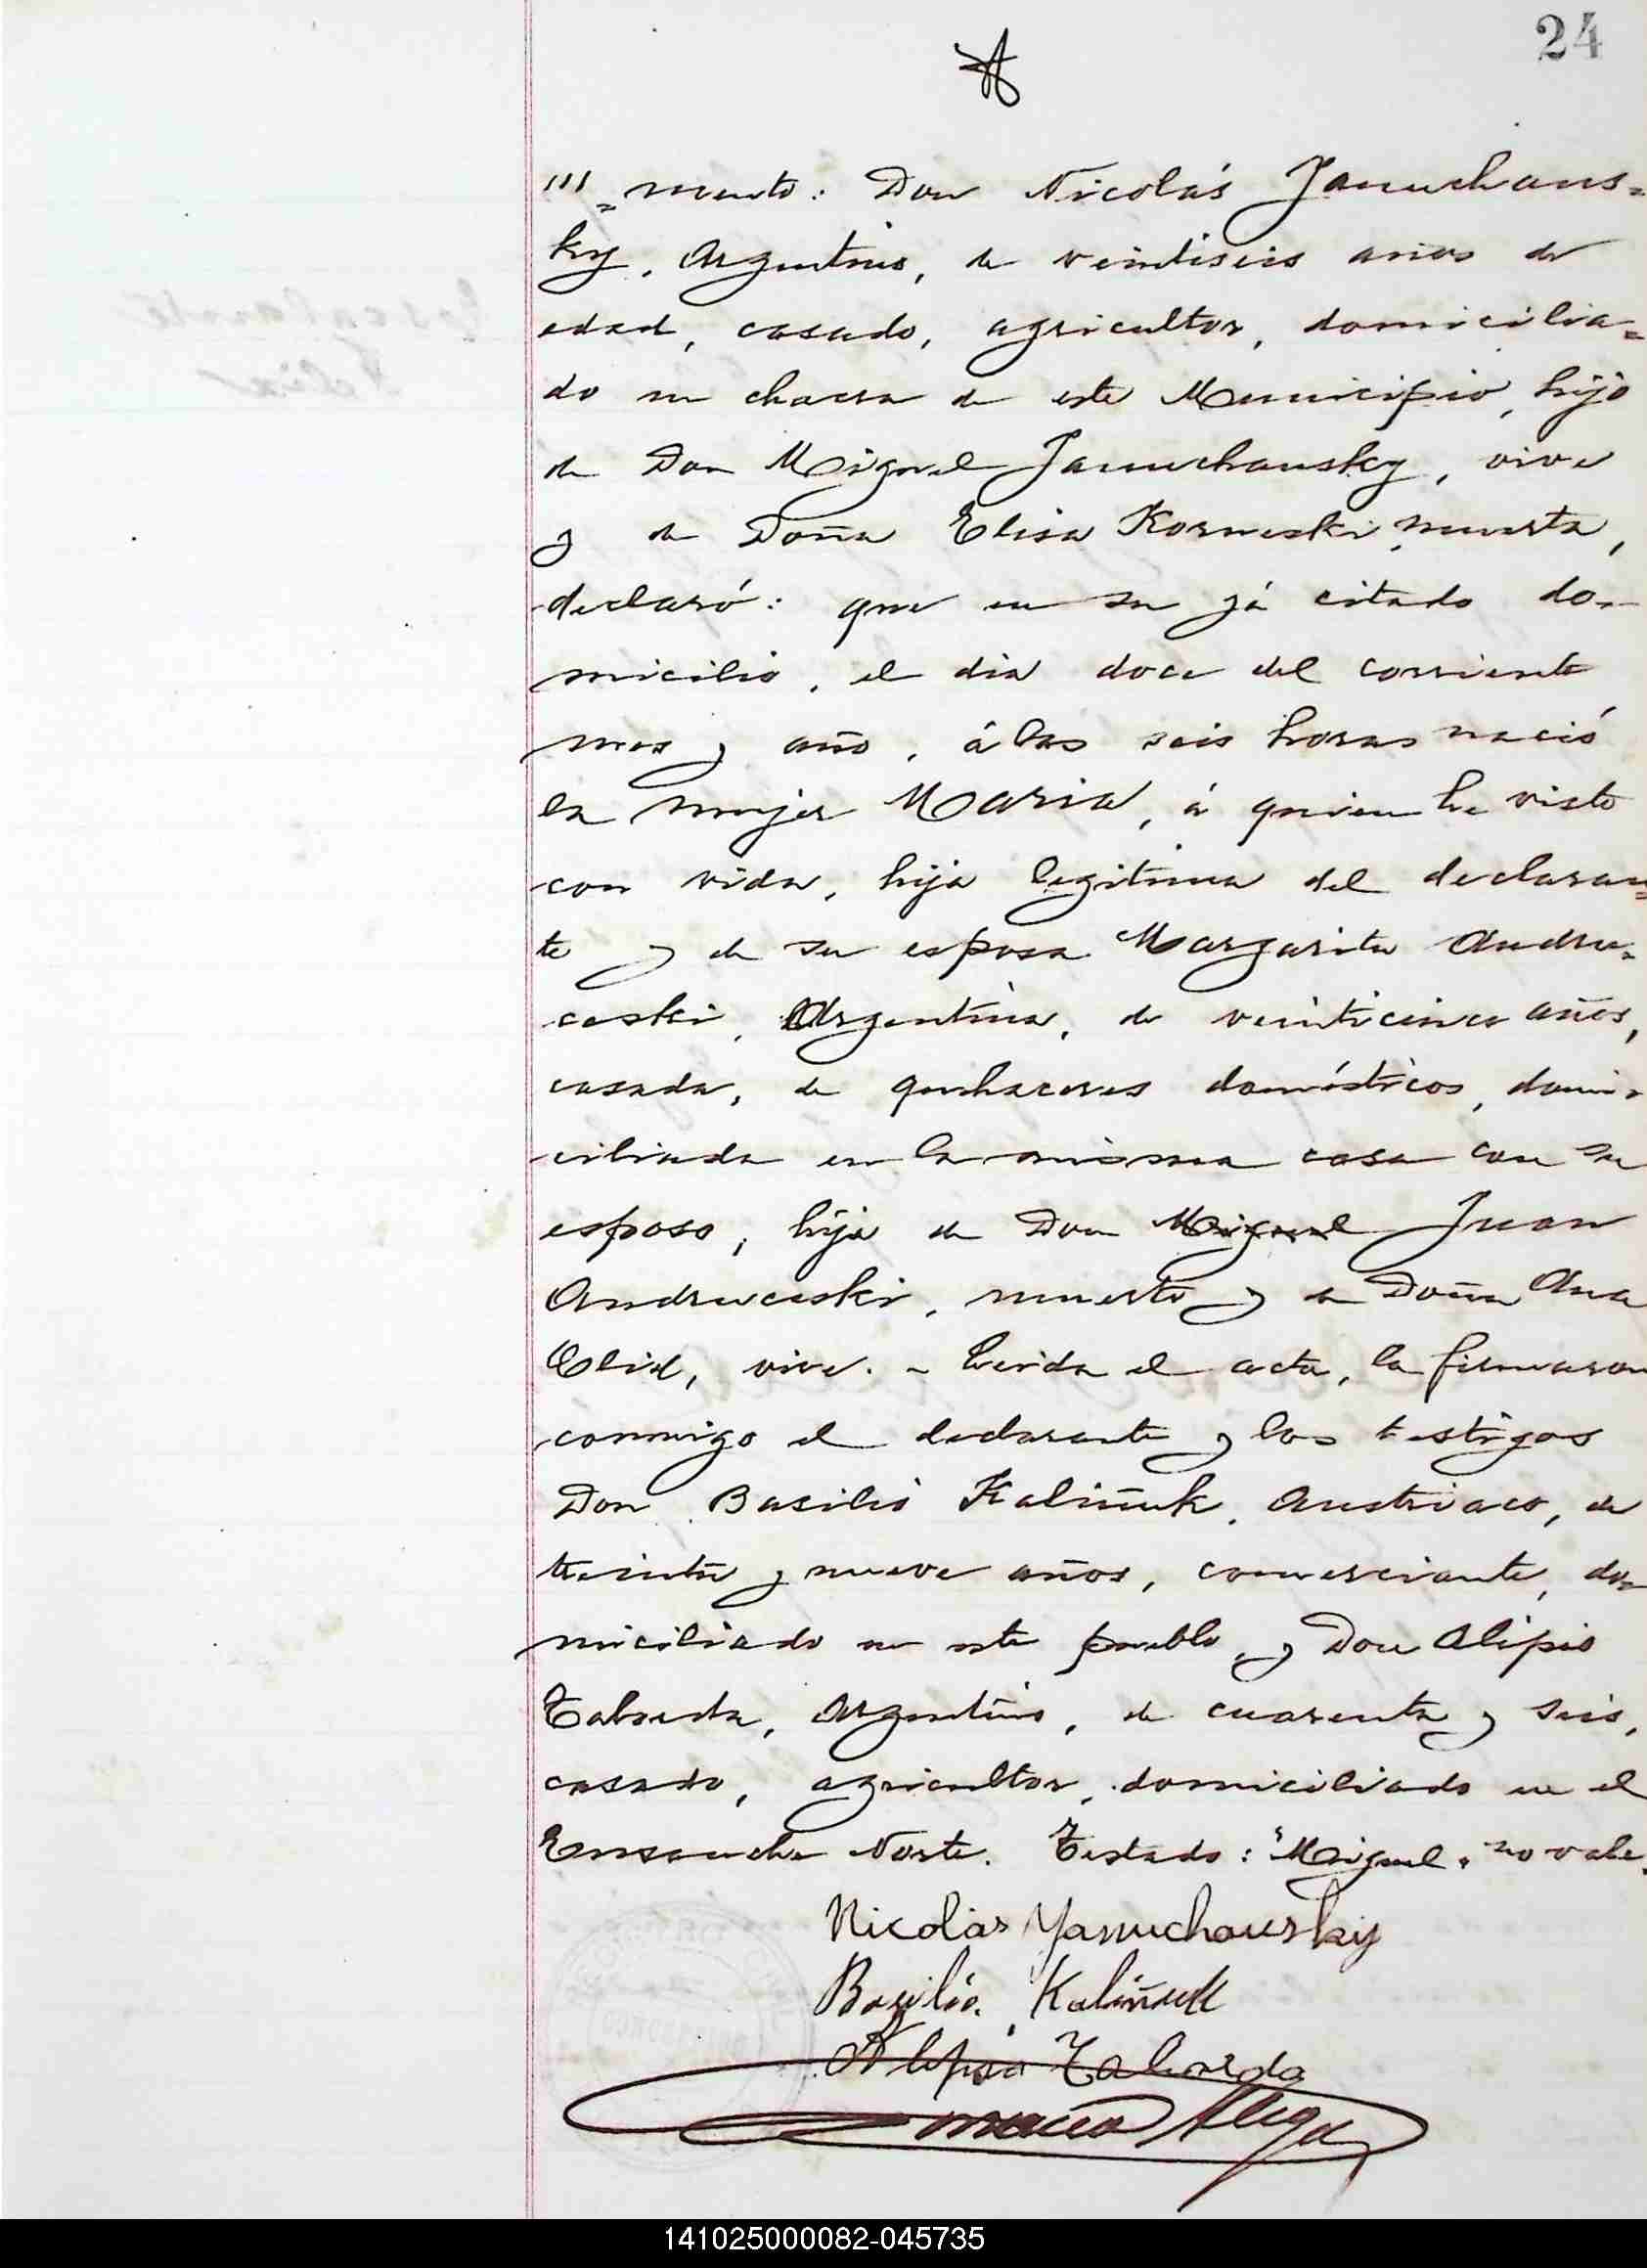 24
''' = mento: Don Nicolás Januchans=
ky, Argentino, de veintiseis años de
edad, casado, agricultor, domicilia=
do en chacra de este Municipio, hijo
de Don Miguel Januchansky, vive
y de Doña Elisa Korneski, muerta,
declaró: que en su yá citado do-
micilio, el dia doce del corriente
mes y año, á las seis horas nació
la mujer Maria, á quien he visto
con vida, hija legitima del declaran=
te y de su esposa Margarita Andru=
ceski, Argentina, de veinticinco años,
casada, de quehaceres domésticos, domi-
ciliada en la misma casa con su
esposo, hija de Don Miguel Juan
Andruceski, muerto y de Doña Ana
Elid, vive. - Leida el acta, la firmaron
conmigo el declarante y los testigos
Don Basilio Kaliñuk, Austriaco, de
treinta y nueve años, comerciante, do=
miciliado en este pueblo, y Don Alipio
Taborda, Argentino, de cuarenta y seis,
casado, agricultor, domiciliado en el
Ensanche Norte. Testado: "Miguel" no vale.
Nicolas Yanuchausky
Basilio Kaliñuk
Alipio Taborda
141025000082-045735